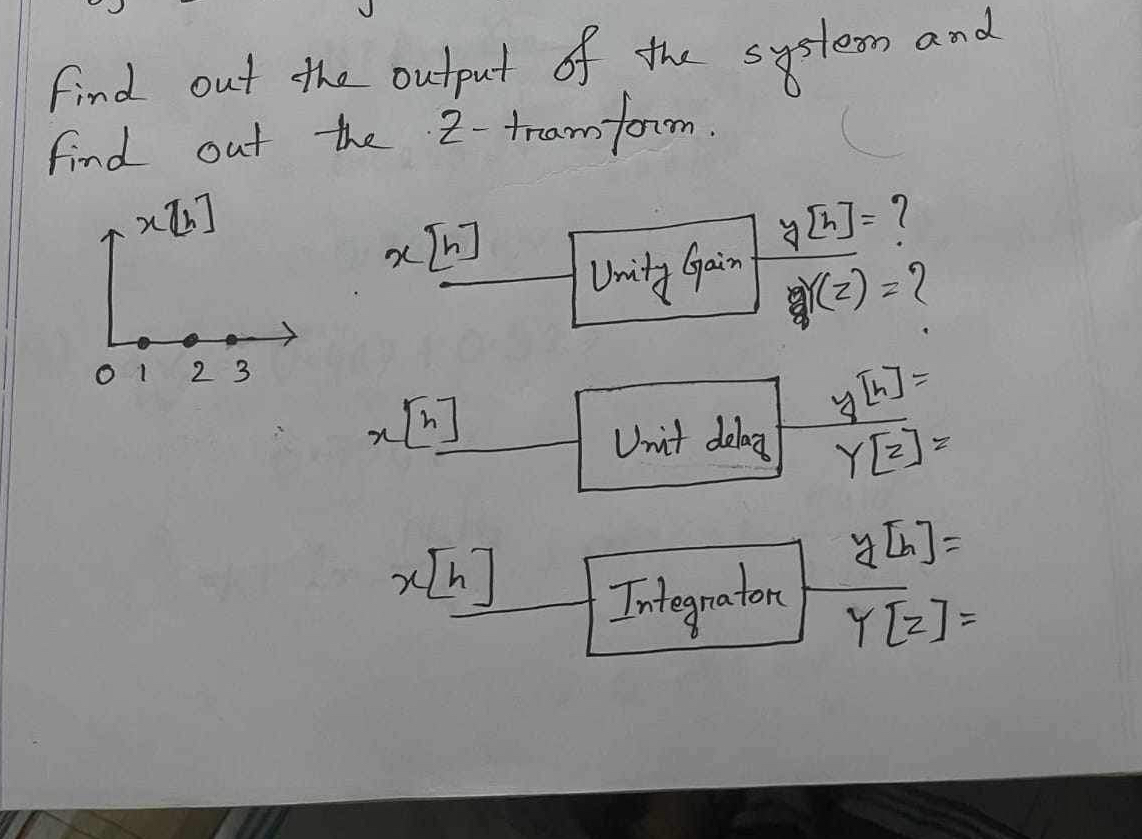 find out the output of the system and
find out the Z-transform.
x[n]
0 1 2 3
x[n]
Unity Gain
y[n]= ?
Y(z) = ?
x[n]
Unit delay
y[n]=
Y[z]=
x[n]
Integrator
y[n]=
Y[z]=